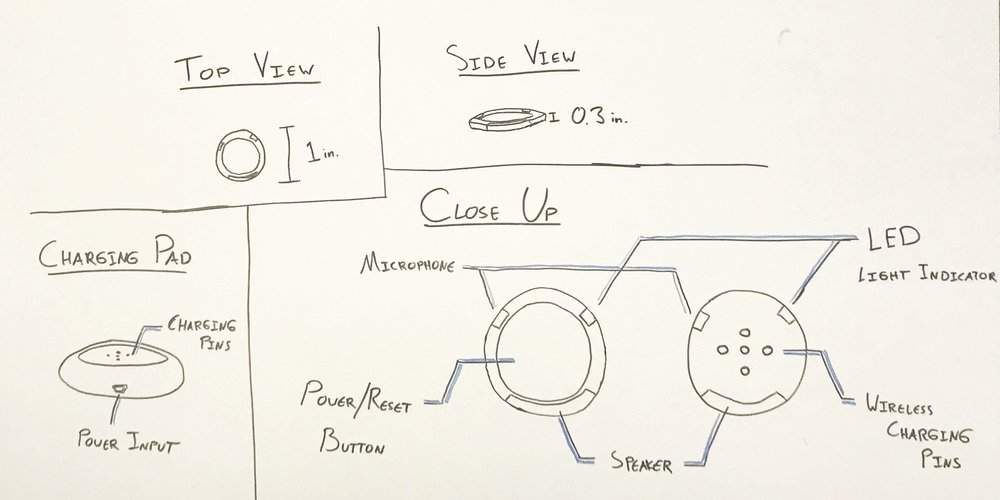 Top View
1 in.
Side View
0.3 in.
Charging Pad
Charging
Pins
Power Input
Close Up
Microphone
LED
Light Indicator
Power/Reset
Button
Speaker
Wireless
Charging
Pins